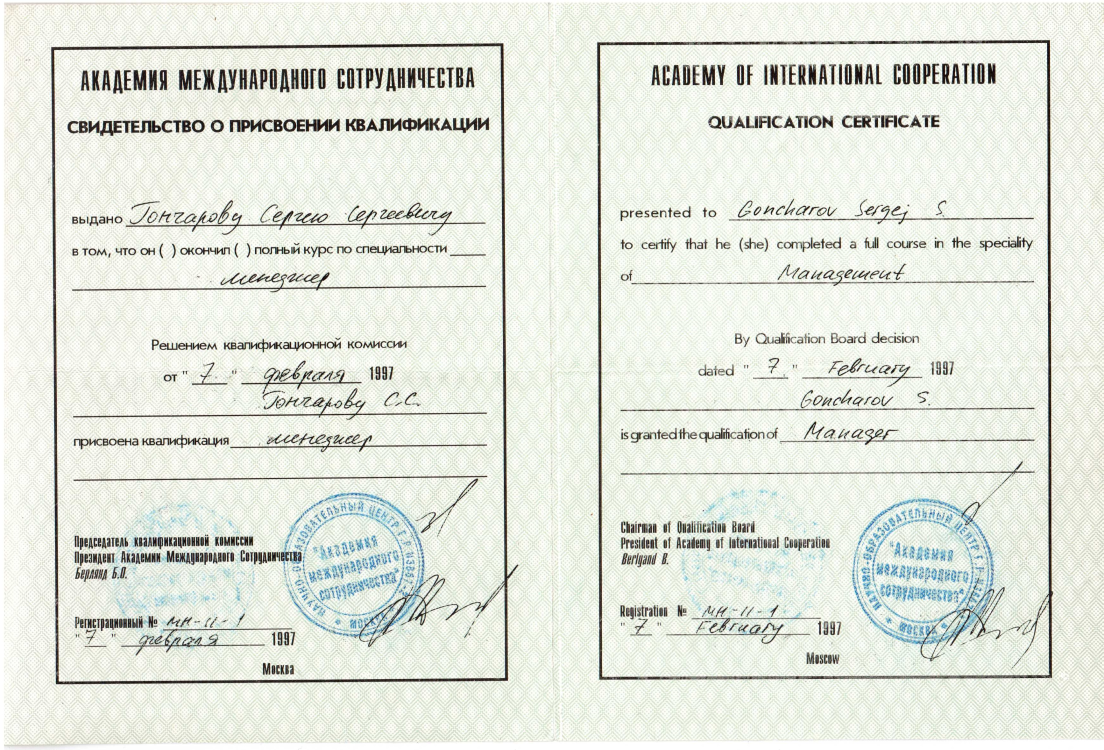 АКАДЕМИЯ МЕЖДУНАРОДНОГО СОТРУДНИЧЕСТВА
СВИДЕТЕЛЬСТВО О ПРИСВОЕНИИ КВАЛИФИКАЦИИ
выдано Гончарову Сергею Сергеевичу
в том, что он ( ) окончил ( ) полный курс по специальности
менеджер
Решением квалификационной комиссии
от " 7 " февраля 1997
Гончарову С.С.
присвоена квалификация менеджер
Председатель квалификационной комиссии
Президент Академии Международного Сотрудничества
Берлянд Б.О.
Регистрационный № МН-11-1
" 7 " февраля 1997
Москва
НАУЧНО-ОБРАЗОВАТЕЛЬНЫЙ ЦЕНТР
"Академия
международного
сотрудничества"
МОСКВА
ACADEMY OF INTERNATIONAL COOPERATION
QUALIFICATION CERTIFICATE
presented to Goncharov Sergej S.
to certify that he (she) completed a full course in the speciality
of Management
By Qualification Board decision
dated " 7. " February 1997
Goncharov S.
is granted the qualification of Manager
Chairman of Qualification Board
President of Academy of International Cooperation
Berlyand B.
Registration № МН-11-1
" 7 " February 1997
Moscow
НАУЧНО-ОБРАЗОВАТЕЛЬНЫЙ ЦЕНТР
"Академия
международного
сотрудничества"
МОСКВА